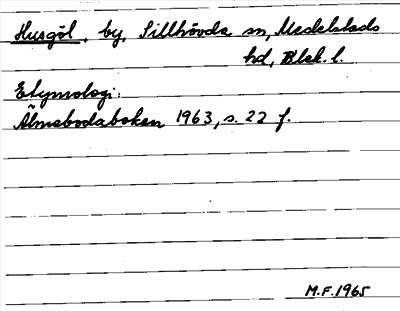 Husgöl, by, Sillhövda sn, Medelstads
hd, Blek. l.
Etymologi:
Älmebodaboken 1963, s. 22 f.
M.F. 1965